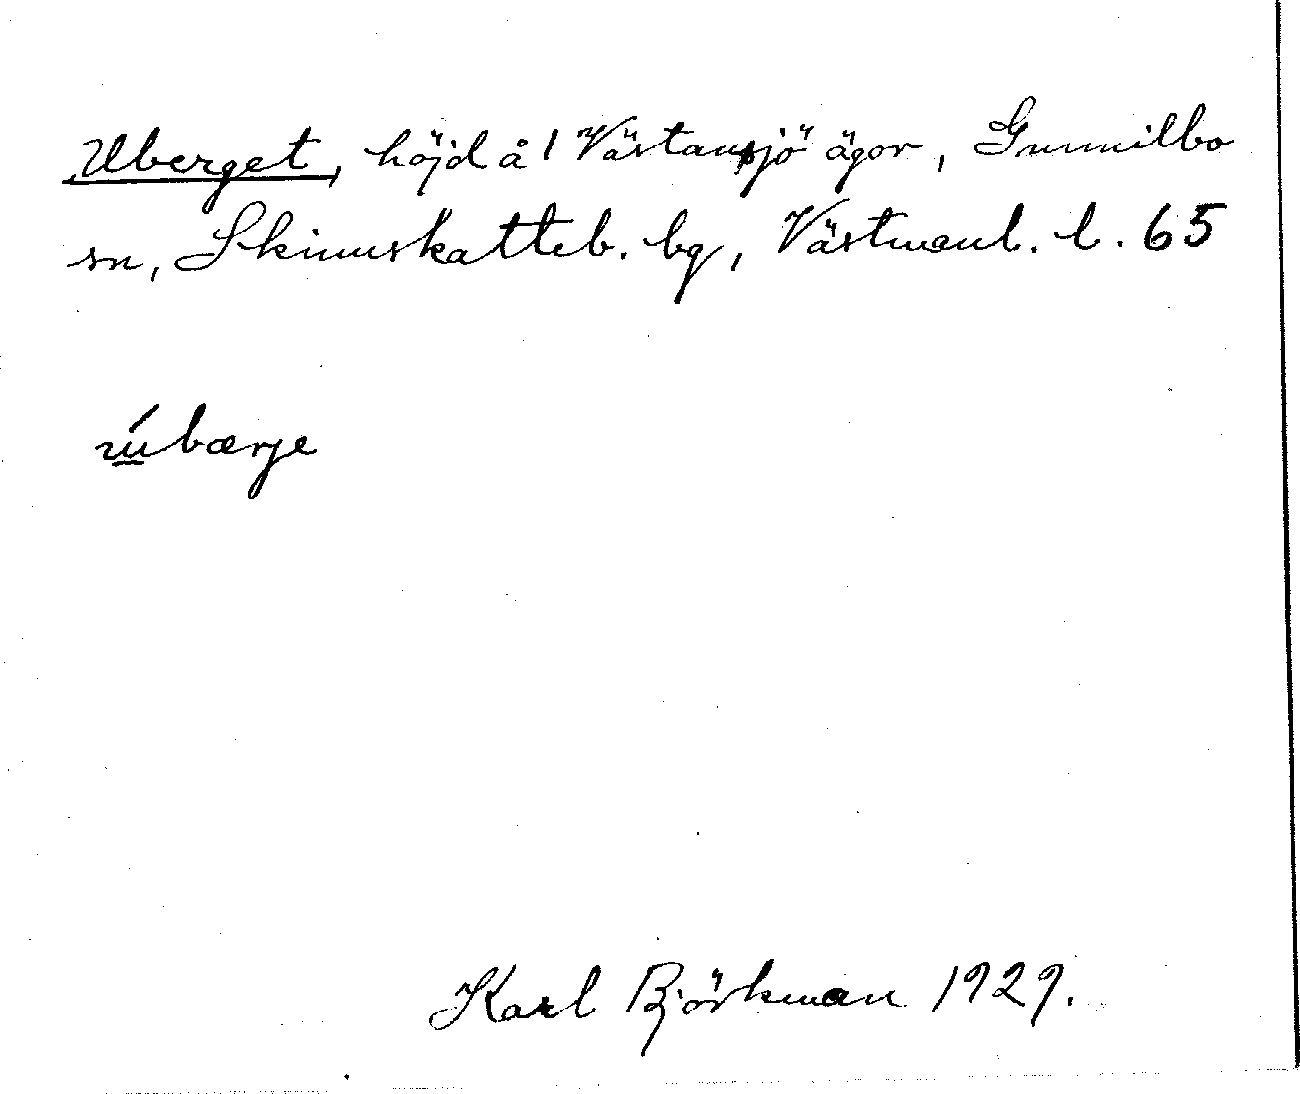 Uberget, höjd å 1 Västansjö ägor, Gunnilbo
sn, Skinnskatteb. bg, Västmanl. l. 65
úbærje
Karl Björkman 1929.